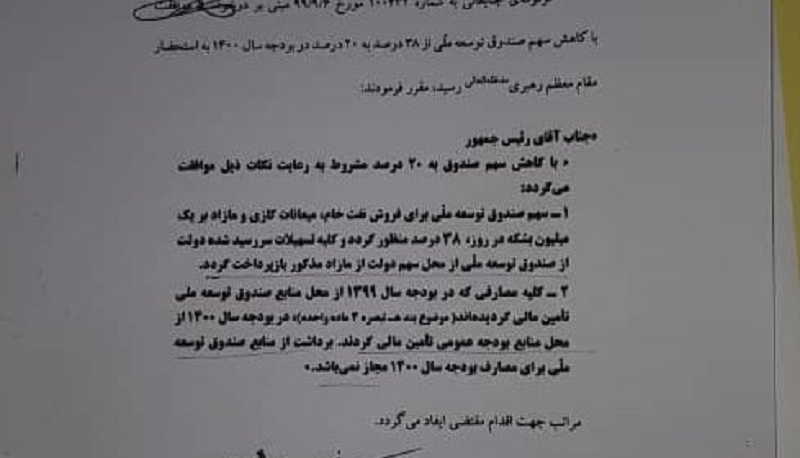 به شماره ۱۰۰۴۴۲ مورخ ۹۹/۹/۶ مبنی بر
با کاهش سهم صندوق توسعه ملّی از ۳۸ درصد به ۲۰ درصد در بودجه سال ۱۴۰۰ به استحضار
مقام معظم رهبری مدظله‌العالی رسید، مقرر فرمودند:
«جناب آقای رئیس جمهور
• با کاهش سهم صندوق به ۲۰ درصد مشروط به رعایت نکات ذیل موافقت
می‌گردد:
۱ــ سهم صندوق توسعه ملّی برای فروش نفت خام، میعانات گازی و مازاد بر یک
میلیون بشکه در روز، ۳۸ درصد منظور گردد و کلیه تسهیلات سررسید شده دولت
از صندوق توسعه ملّی از محل سهم دولت از مازاد مذکور بازپرداخت گردد.
۲ ــ کلیه مصارفی که در بودجه سال ۱۳۹۹ از محل منابع صندوق توسعه ملی
تأمین مالی گردیده‌اند( موضوع بند هـ تبصره ۴ ماده واحده)، در بودجه سال ۱۴۰۰ از
محل منابع بودجه عمومی تأمین مالی گردند. برداشت از منابع صندوق توسعه
ملّی برای مصارف بودجه سال ۱۴۰۰ مجاز نمی‌باشد.»
مراتب جهت اقدام مقتضی ایفاد می‌گردد.